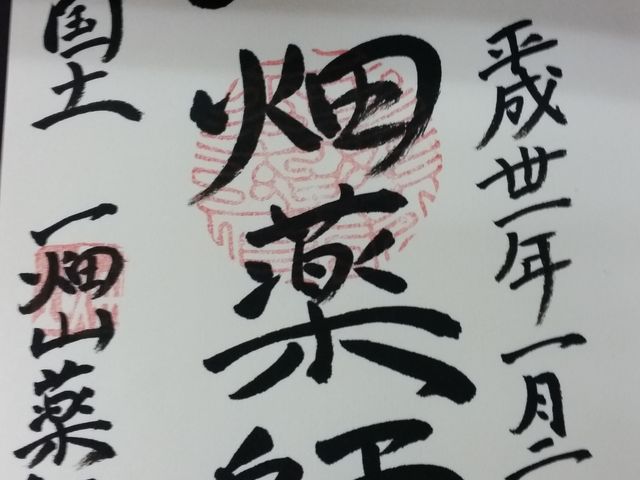 平成卅一年一月二
畑薬師
国土 一畑山薬